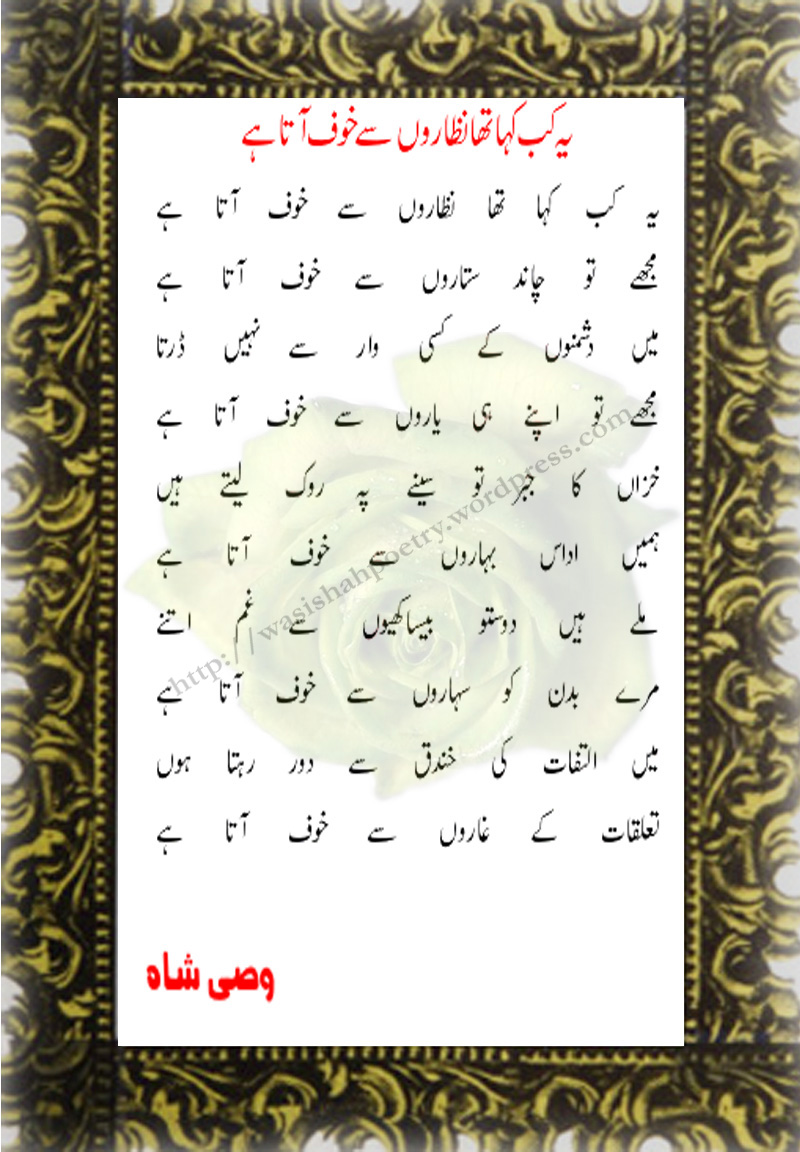 یہ کب کہا تھا نظاروں سے خوف آتا ہے
یہ کب کہا تھا نظاروں سے خوف آتا ہے
مجھے تو چاند ستاروں سے خوف آتا ہے
میں دشمنوں کے کسی وار سے نہیں ڈرتا
مجھے تو اپنے ہی یاروں سے خوف آتا ہے
خزاں کا جبر تو سینے پہ روک لیتے ہیں
ہمیں اداس بہاروں سے خوف آتا ہے
ملے ہیں دوستو بیساکھیوں سے غم اتنے
مرے بدن کو سہاروں سے خوف آتا ہے
میں التفات کی خندق سے دور رہتا ہوں
تعلقات کے غاروں سے خوف آتا ہے
وصی شاہ
http://wasishahpoetry.wordpress.com